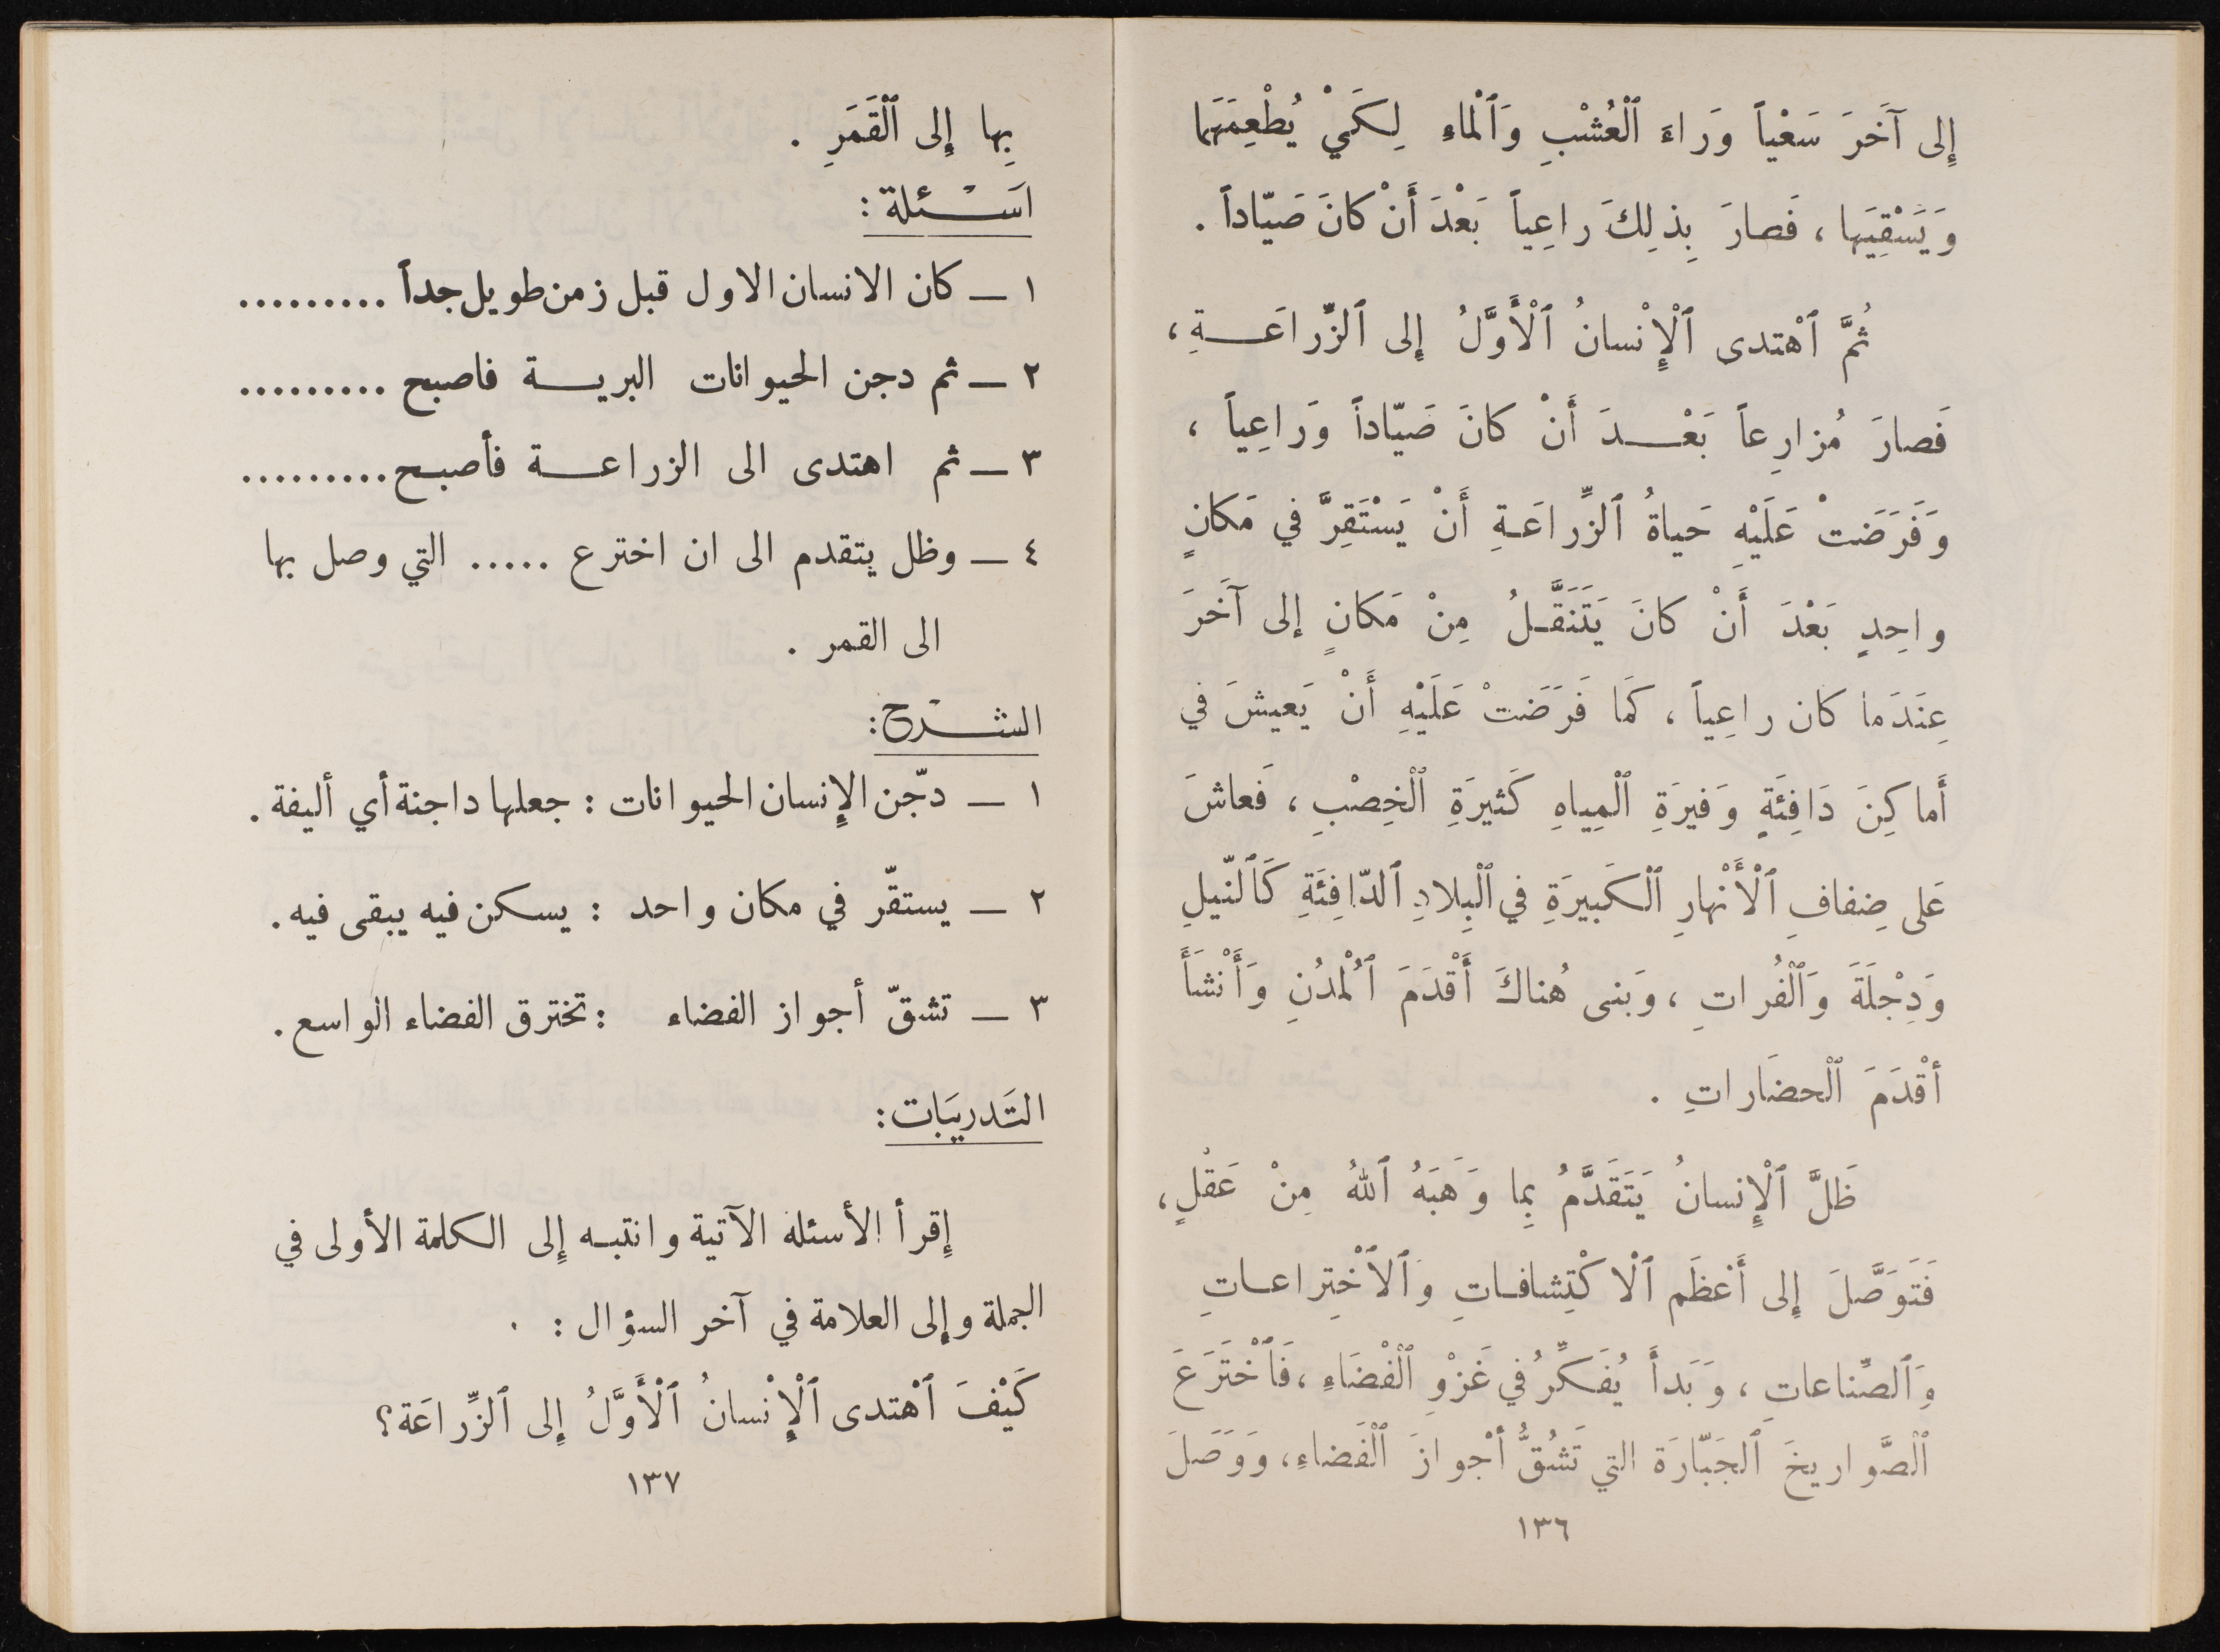 إِلى آخَرَ سَعْياً وَراءَ ٱلْعُشْبِ وَٱلْماءِ لِكَيْ يُطْعِمَهَا
وَيَسْقِيَها ، فَصارَ بِذلِكَ راعِياً بَعْدَ أَنْ كانَ صَيّاداً .
ثُمَّ ٱهْتدى ٱلْإِنْسانُ ٱلْأَوَّلُ إِلى ٱلزِّراعَـــةِ ،
فَصارَ مُزارِعاً بَعْـــدَ أَنْ كانَ صَيّاداً وَراعِياً ،
وَفَرَضَتْ عَلَيْهِ حَياةُ ٱلزِّراعَـةِ أَنْ يَسْتَقِرَّ في مَكانٍ
واحِدٍ بَعْدَ أَنْ كانَ يَتَنَقَّـلُ مِنْ مَكانٍ إلى آخَرَ
عِنَدَما كان راعِياً ، كَمَا فَرَضَتْ عَلَيْهِ أَنْ يَعيشَ في
أَماكِنَ دَافِئَةٍ وَفيرَةِ ٱلْمِياهِ كَثيرَةِ ٱلْخِصْبِ ، فَعاشَ
عَلى ضِفافِ ٱلْأَنْهارِ ٱلْكَبيرَةِ في ٱلْبِلادِ ٱلدّافِئَةِ كَٱلنّيلِ
وَدِجْلَةَ وَٱلْفُراتِ ، وَبَنى هُناكَ أَقْدَمَ ٱلْمُدُنِ وَأَنْشَأَ
أقْدَمَ ٱلْحضَاراتِ .
ظَلَّ ٱلْإِنسانُ يَتَقَدَّمُ بِما وَهَبَهُ ٱللهُ مِنْ عَقْلٍ ،
فَتَوَصَّلَ إِلى أَعْظَم ٱلْاكْتِشافـاتِ وَٱلاْخْتِراعـاتِ
وَٱلصِّناعاتِ ، وَبَدأَ يُفَكِّرُ في غَزْوِ ٱلْفْضَاءِ ، فَٱخْتَرَعَ
ٱلْصَّواريخَ ٱلجَبّارَة التي تَشُقُّ أْجوازَ ٱلْفَضاءِ ، وَوَصَلَ
١٣٦
بِها إِلى ٱلْقَمَرِ .
اَسْــئلة :
١ ــ كان الانسان الاول قبل زمن طويل جداً .........
٢ ــ ثم دجن الحيوانات البريـــة فاصبح .........
٣ ــ ثم اهتدى الى الزراعـــة فأصبـح .........
٤ ــ وظل يتقدم الى ان اخترع ..... التي وصل بها
الى القمر .
الشــرْح :
١ ــ دجّن الإِنسان الحيوانات : جعلها داجنة أي أليفة .
٢ ــ يستقّر في مكان واحد : يسكن فيه يبقى فيه .
٣ ــ تشقّ أجواز الفضاء : تخترق الفضاء الواسع .
التَدريَبات :
إِقرأ الأسئلة الآتية وانتبـه إِلى الكلمة الأولى في
الجملة وإِلى العلامة في آخر السؤال :
كَيْفَ ٱهْتدى ٱلْإِنْسانُ ٱلْأَوَّلُ إِلى ٱلزِّراعَة؟
١٣٧